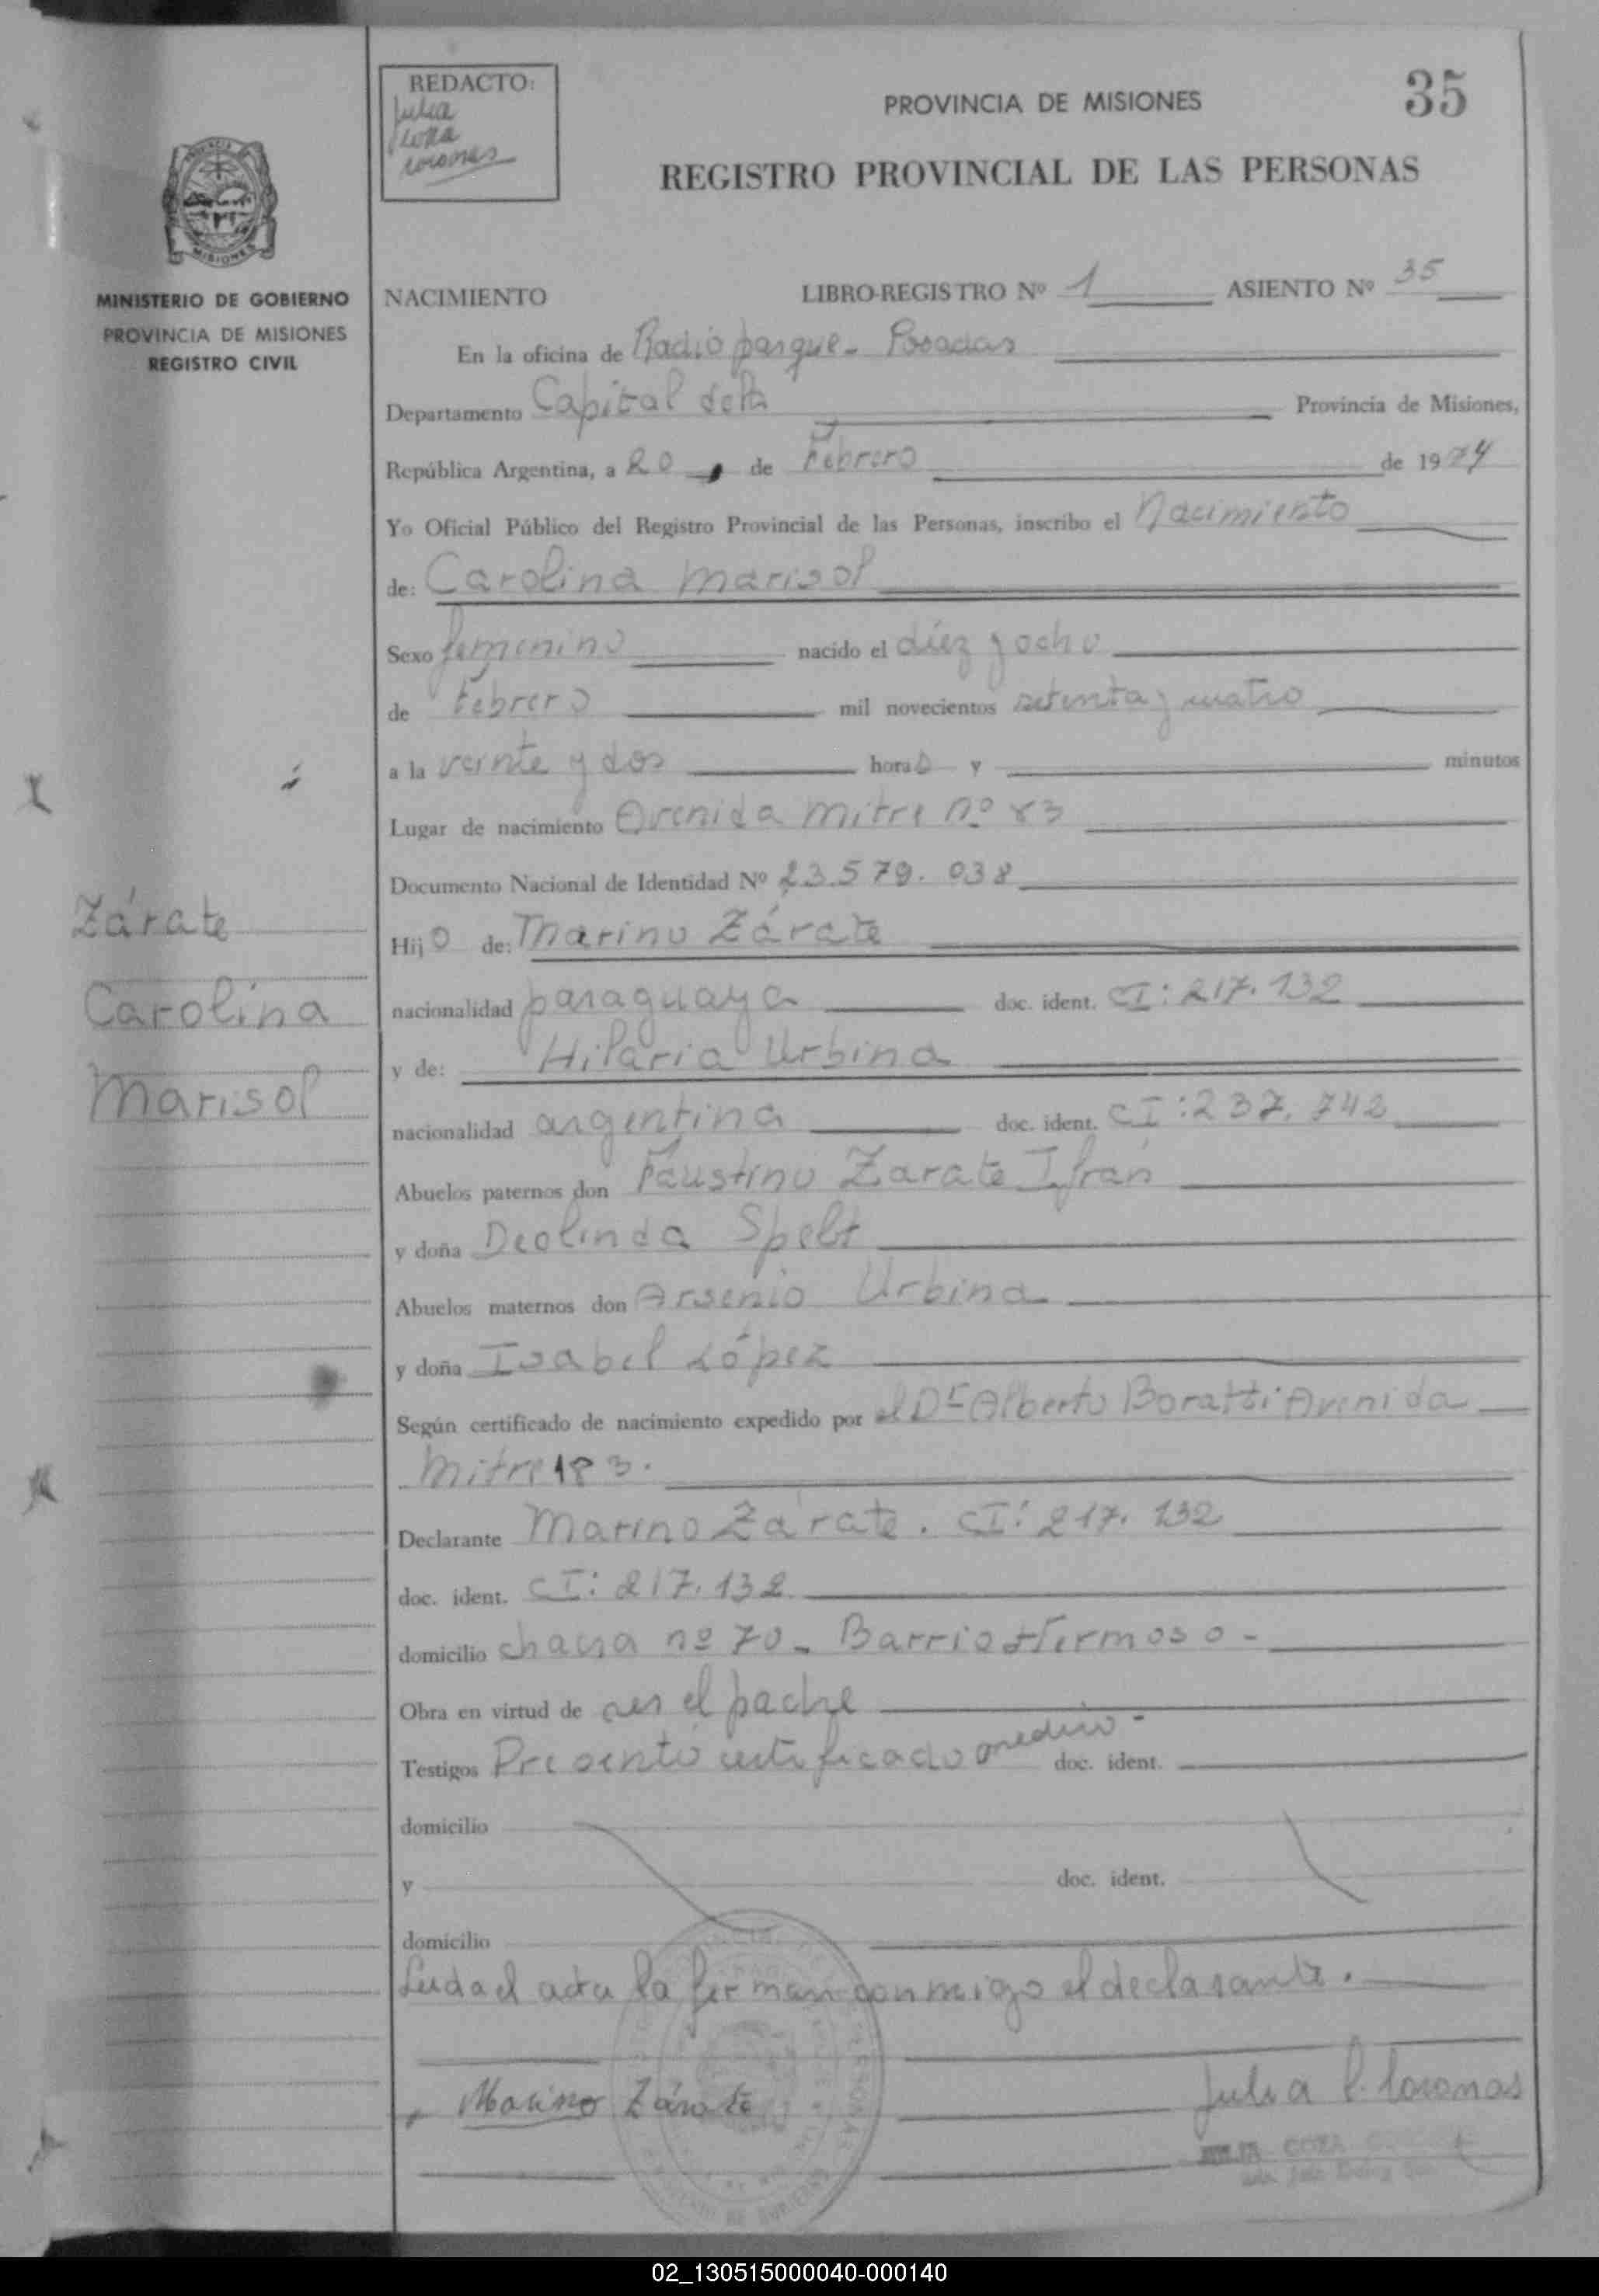 REDACTO:
Julia
PROVINCIA DE MISIONES
35
REGISTRO PROVINCIAL DE LAS PERSONAS
MISIONES
MINISTERIO DE GOBIERNO
PROVINCIA DE MISIONES
REGISTRO CIVIL
NACIMIENTO LIBRO-REGISTRO Nº 1 ASIENTO Nº 35
En la oficina de Radio parque - Posadas
Departamento Capital Provincia de Misiones,
República Argentina, a 20 de Febrero de 1974
Yo Oficial Público del Registro Provincial de las Personas, inscribo el Nacimiento
de: Carolina Marisol
Sexo femenino nacido el diez y ocho
de Febrero mil novecientos setenta y cuatro
a la veinte y dos horas y minutos
Lugar de nacimiento Avenida Mitre nº
Documento Nacional de Identidad Nº 23.579.038
Zárate
Hijo de: Marino Zárate
Carolina
nacionalidad paraguaya doc. ident. CI: 217.132
y de: Hilaria Urbina
Marisol
nacionalidad argentina doc. ident. CI: 237.742
Abuelos paternos don Faustino Zarate Ifrán
y doña Deolinda Spelt
Abuelos maternos don Arsenio Urbina
y doña Isabel López
Según certificado de nacimiento expedido por el Dr Alberto Boratti Avenida
Mitre 183.
Declarante Marino Zárate. CI: 217.132
doc. ident. CI: 217.132
domicilio chacra nº 70 - Barrio Hermoso -
Obra en virtud de ser el padre
Testigos Presentó certificado medico - doc. ident.
domicilio
y doc. ident.
domicilio
Leida el acta la firman conmigo el declarante.
Marino Zárate
Julia
02_130515000040-000140